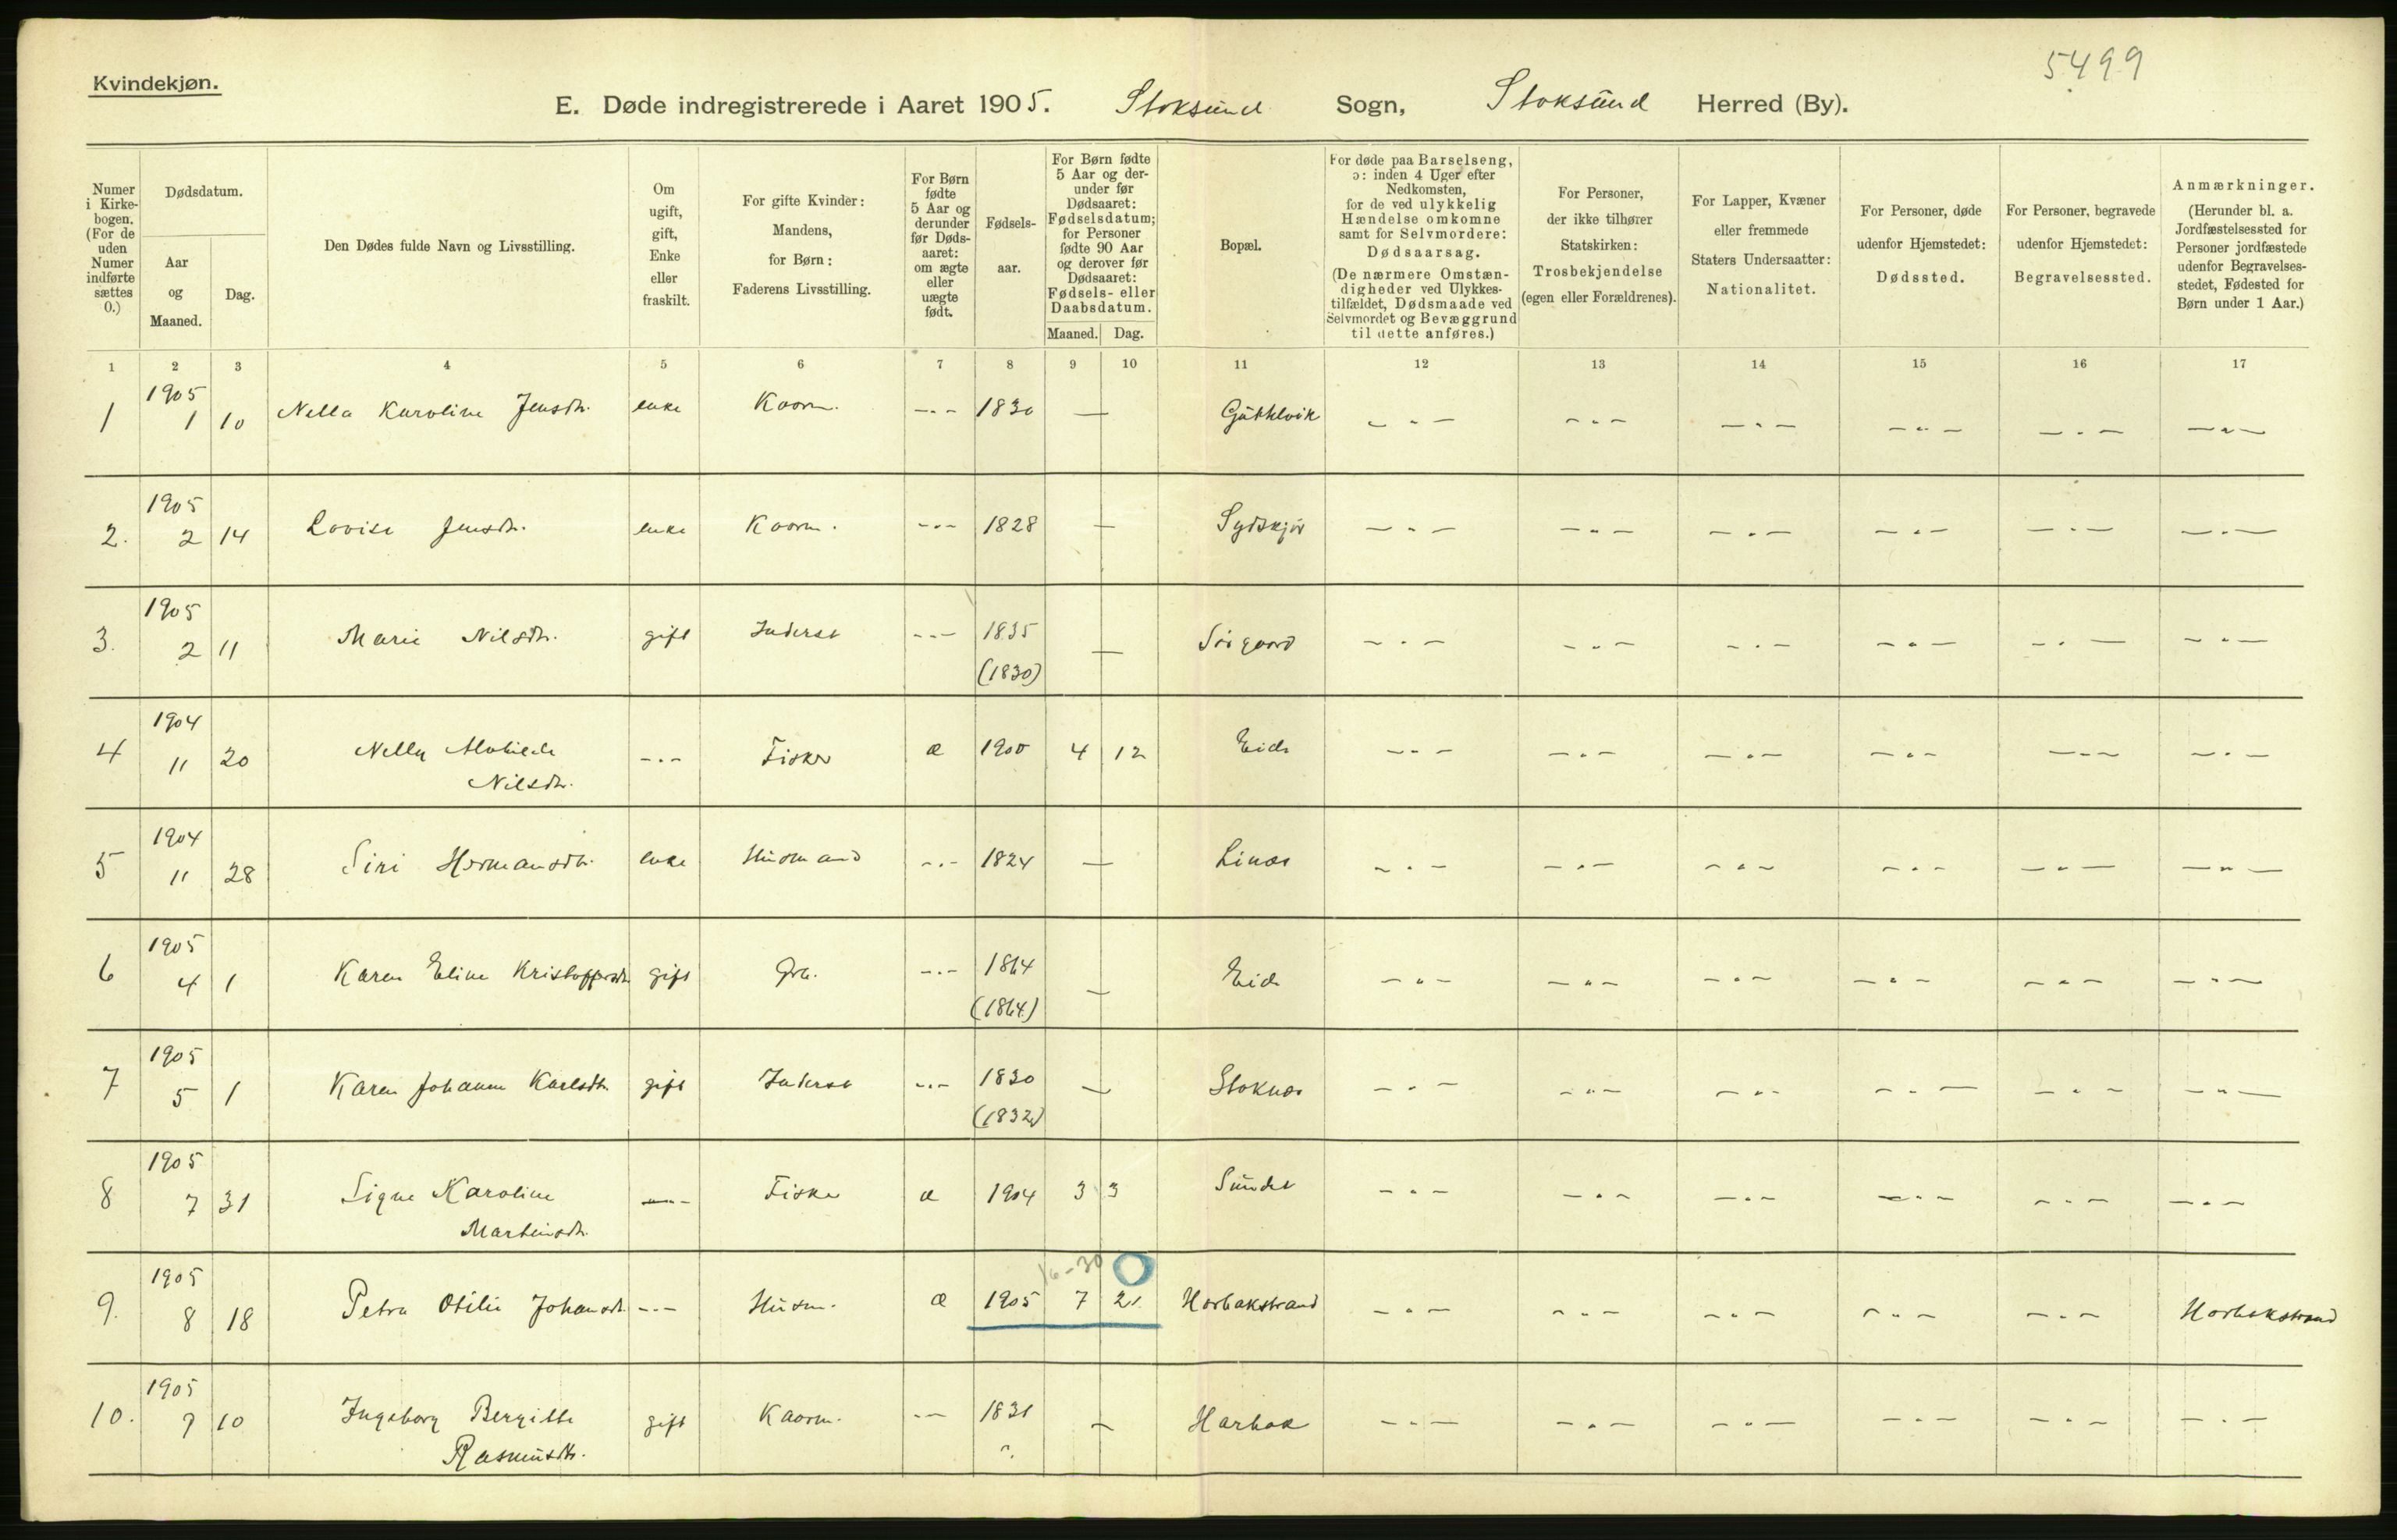 Kvindekjøn.
5499
E. Døde indregistrerede i Aaret 1905. Stoksund Sogn, Stoksund Herred (By).
Numer i Kirkebogen. (For de uden Numer indførte sættes 0.)
Dødsdatum.
Aar og Maaned.
Dag.
Den Dødes fulde Navn og Livsstilling.
Om ugift, gift, Enke eller fraskilt.
For gifte Kvinder: Mandens, for Børn: Faderens Livsstilling.
For Børn fødte 5 Aar og derunder før Dødsaaret: om ægte eller uægte født.
Fødselsaar.
For Børn fødte 5 Aar og derunder før Dødsaaret: Fødselsdatum; for Personer fødte 90 Aar og derover før Dødsaaret: Fødsels- eller Daabsdatum.
Maaned. Dag.
Bopæl.
For døde paa Barselseng, ɔ: inden 4 Uger efter Nedkomsten, for de ved ulykkelig Hændelse omkomne samt for Selvmordere: Dødsaarsag. (De nærmere Omstændigheder ved Ulykkestilfældet, Dødsmaade ved Selvmordet og Bevæggrund til dette anføres.)
For Personer, der ikke tilhører Statskirken: Trosbekjendelse (egen eller Forældrenes).
For Lapper, Kvæner eller fremmede Staters Undersaatter: Nationalitet.
For Personer, døde udenfor Hjemstedet: Dødssted.
For Personer, begravede udenfor Hjemstedet: Begravelsessted.
Anmærkninger. (Herunder bl. a. Jordfæstelsessted for Personer jordfæstede udenfor Begravelsesstedet, Fødested for Børn under 1 Aar.)
1 2 3 4 5 6 7 8 9 10 11 12 13 14 15 16 17
1 1905 1 10 Nella Karoline Jensdtr. enke Kaarm. -"- 1830 —
2. 1905 2 14 Lovise Jensdtr. enke Kaarm. -"- 1828 — Sydskjør
3. 1905 2 11 Marie Nilsdtr. gift Inderst -"- 1835 (1830) — Sørgaard
4 1904 11 20 Nelly Nilsdtr. -"- Fisker æ 1900 4 12 Eid
5 1904 11 28 Siri Hermansdtr. enke Husmand -"- 1824 — Linæs
6 1905 4 1 Karen Eline Kristoffersdtr. gift Grb. -"- 1864 (1864) — Eid
7 1905 5 1 Karen Johanna Karlsdtr. gift Inderst -"- 1830 (1832) — Stoknæs
8 1905 7 31 Signe Karoline Martinsdtr. -"- Fisker æ 1904 3 3 Sundet
16-30 0
9. 1905 8 18 Petra Otilie Johansdtr. -"- Husm. æ 1905 7 21. Harbakstrand Harbakstrand
10. 1905 9 10 Ingeborg Bergitte Rasmusdtr. gift Kaarm. -"- 1831 — Harbak